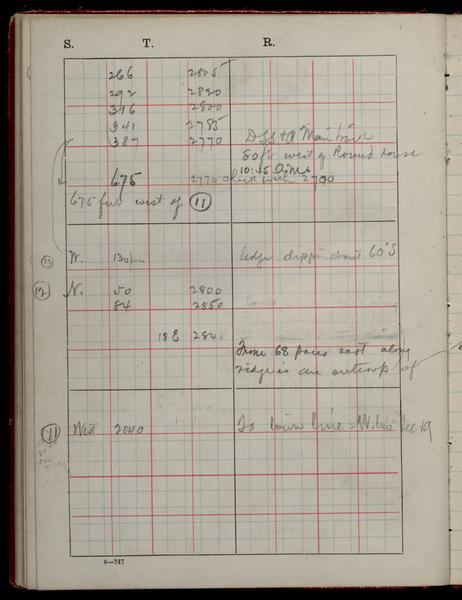 S. T. R.
266 2805
292 2820
316 2800
341 2785
387 2770 Main track
80 ft west of Round house
10:45 A.M.
675 2770 check with 2790
675 feet west of 11
W. 130 ledge dipping about 60°S
12 N. 50 2800
84 2850
18 E 284
From 68 paces east along
ridge is an outcrop of
11 West 2040 To town line = W. line Sec 19
6—747